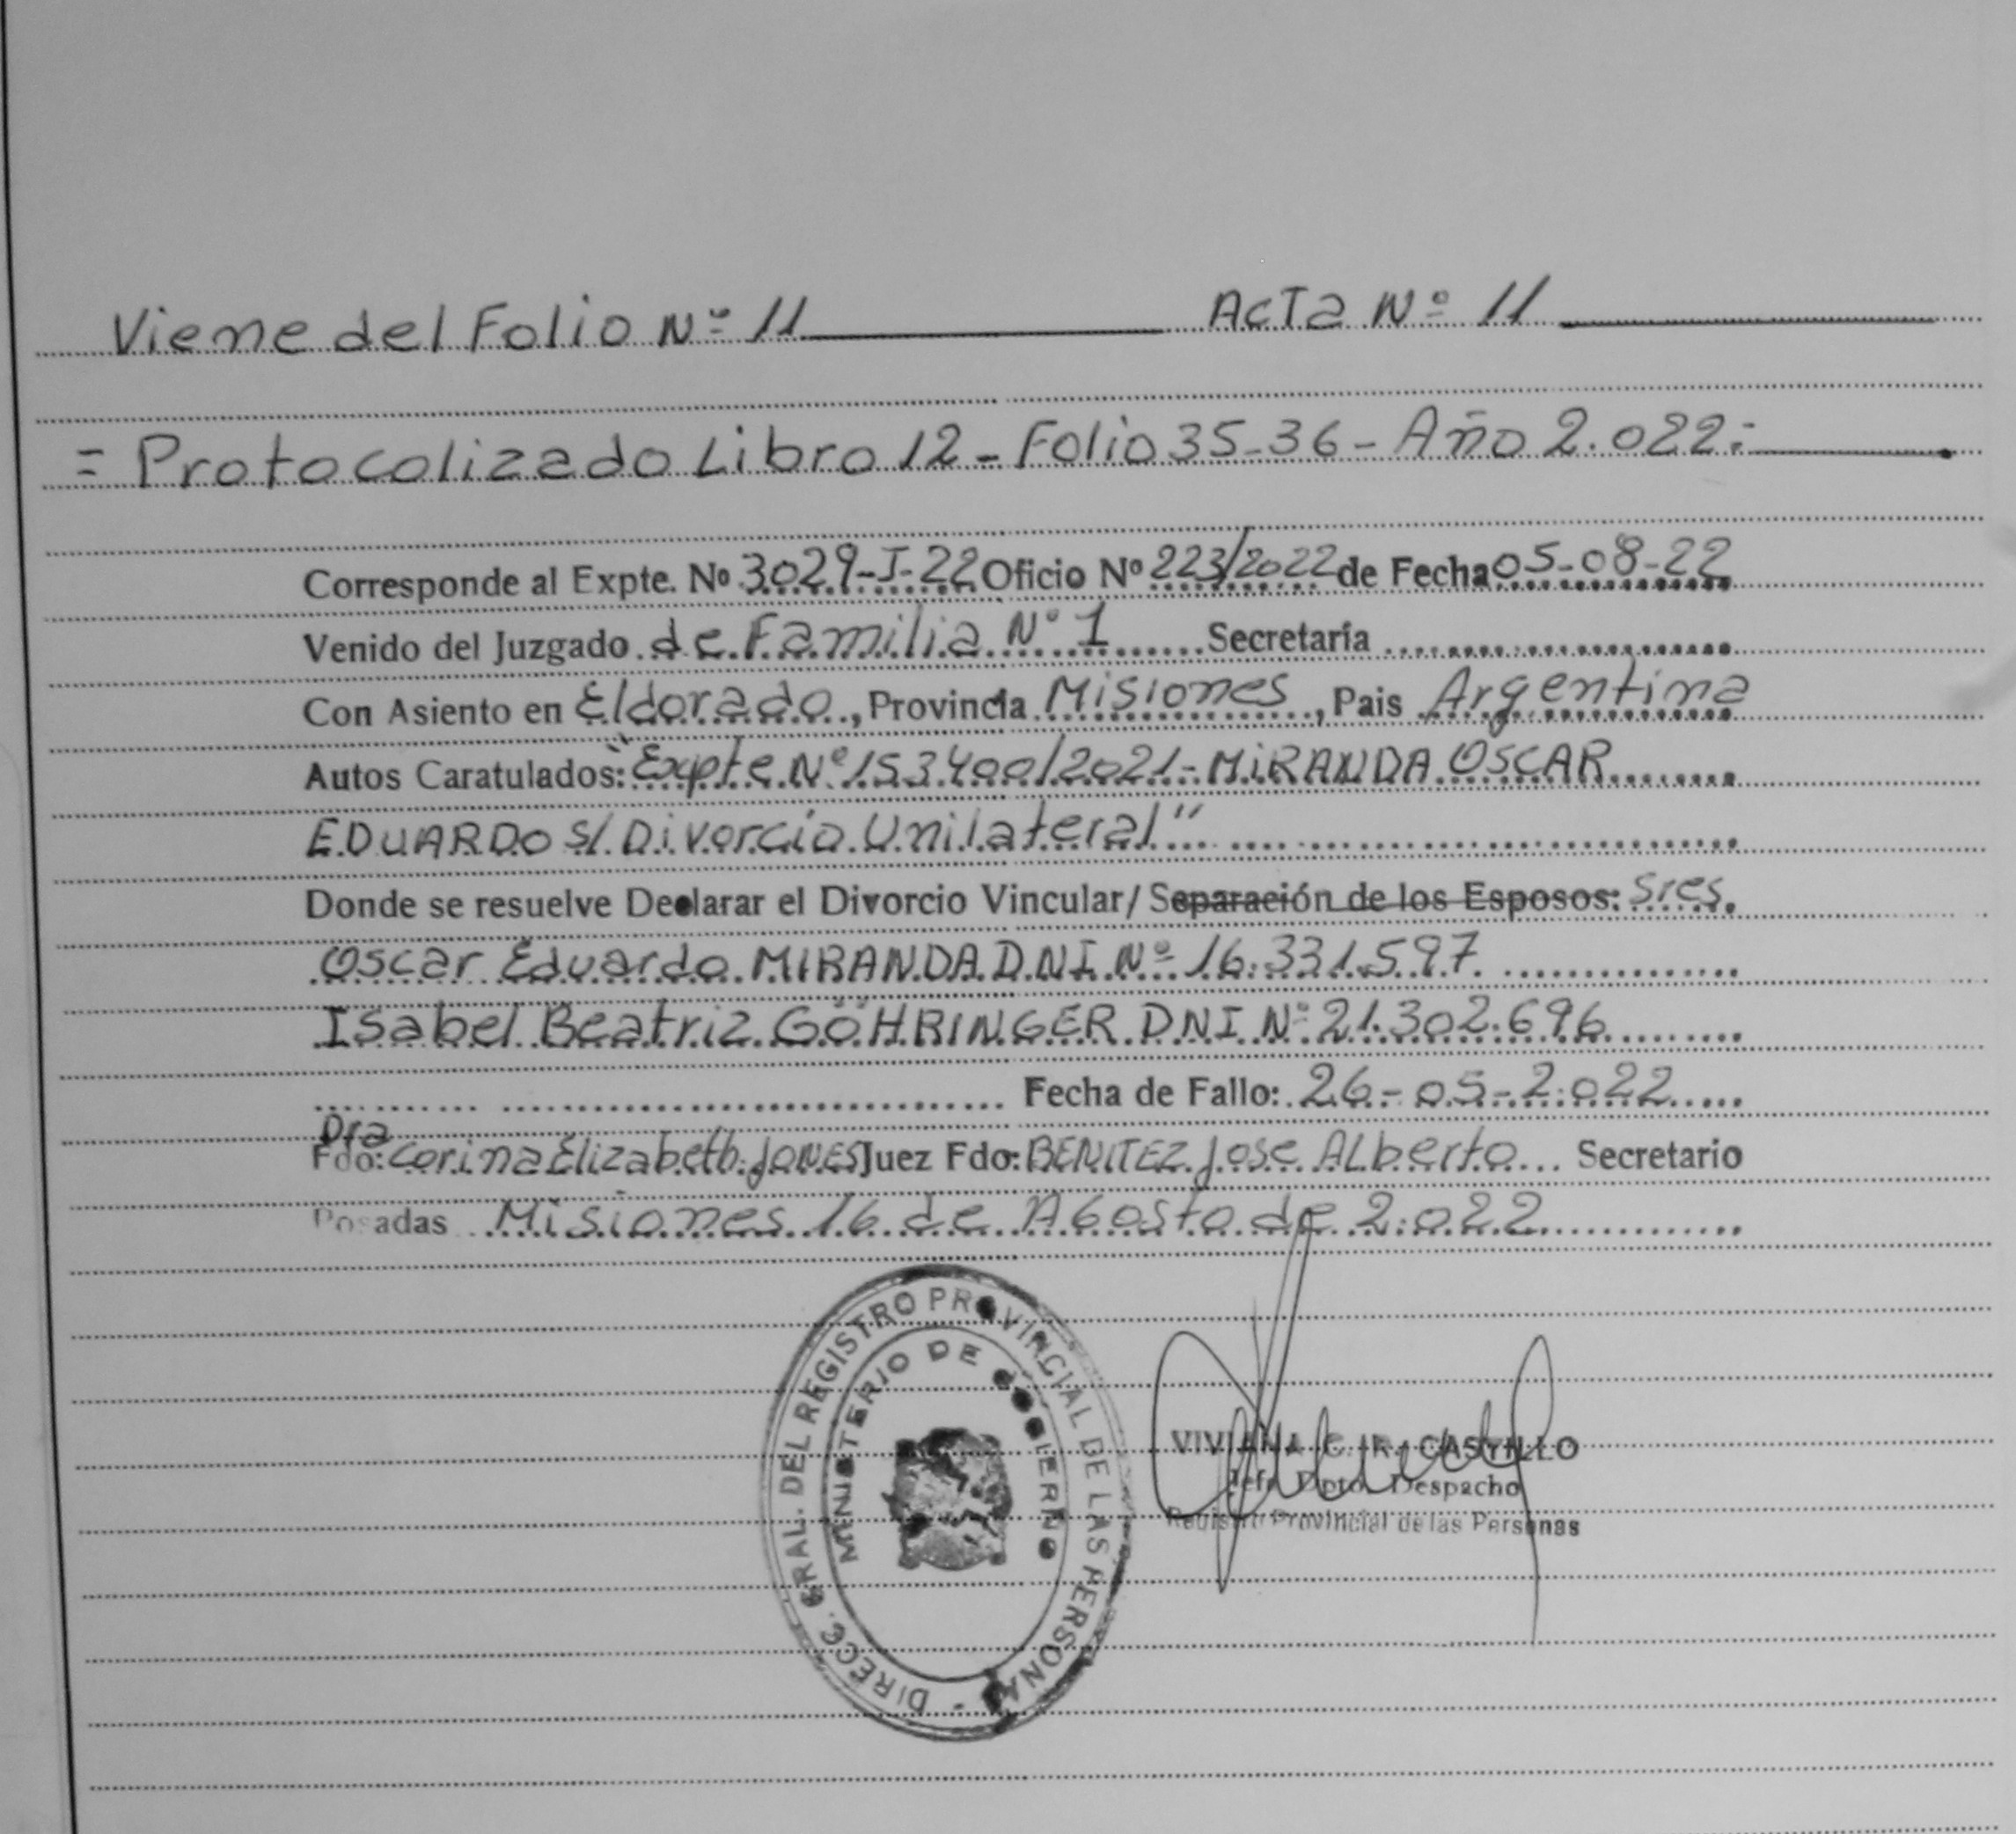 Viene del Folio Nº 11 Acta Nº 11
= Protocolizado Libro 12 - Folio 35-36 - Año 2.022:-
Corresponde al Expte. Nº 3029-I-22 Oficio Nº 223/2022 de Fecha 05-08-22
Venido del Juzgado de Familia Nº 1 Secretaría
Con Asiento en Eldorado, Provincia Misiones, Pais Argentina
Autos Caratulados: "Expte Nº 153400/2021-MIRANDA OSCAR
EDUARDO S/ Divorcio Unilateral"
Donde se resuelve Declarar el Divorcio Vincular/ Separación de los Esposos: Sres.
Oscar Eduardo MIRANDA DNI Nº 16.331.597
Isabel Beatriz GÖHRINGER DNI Nº 21.302.696
Fecha de Fallo: 26-05-2.022
Dra
Fdo: Corina Elizabeth JONES Juez Fdo: BENITEZ Jose Alberto Secretario
Posadas Misiones 16 de Agosto de 2.022
DIRECC. GRAL. DEL REGISTRO PROVINCIAL DE LAS PERSONAS
MINISTERIO DE GOBIERNO
VIVIANA C. R. CASTILLO
Jefe Dpto. Despacho
Registro Provincial de las Personas